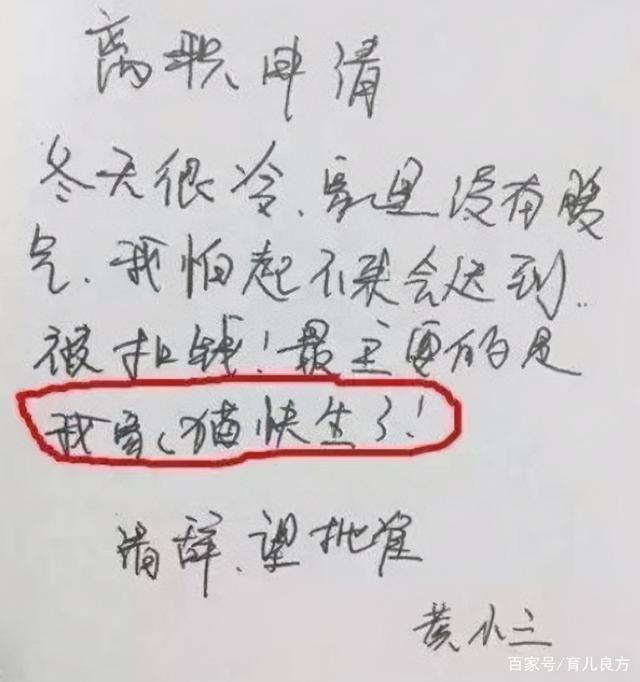 离职申请
冬天很冷、家里没有暖
气、我怕起不来会迟到..
被扣钱！最主要的是
我家心猫快生了！
请辞、望批准
黄小三
百家号/育儿良方